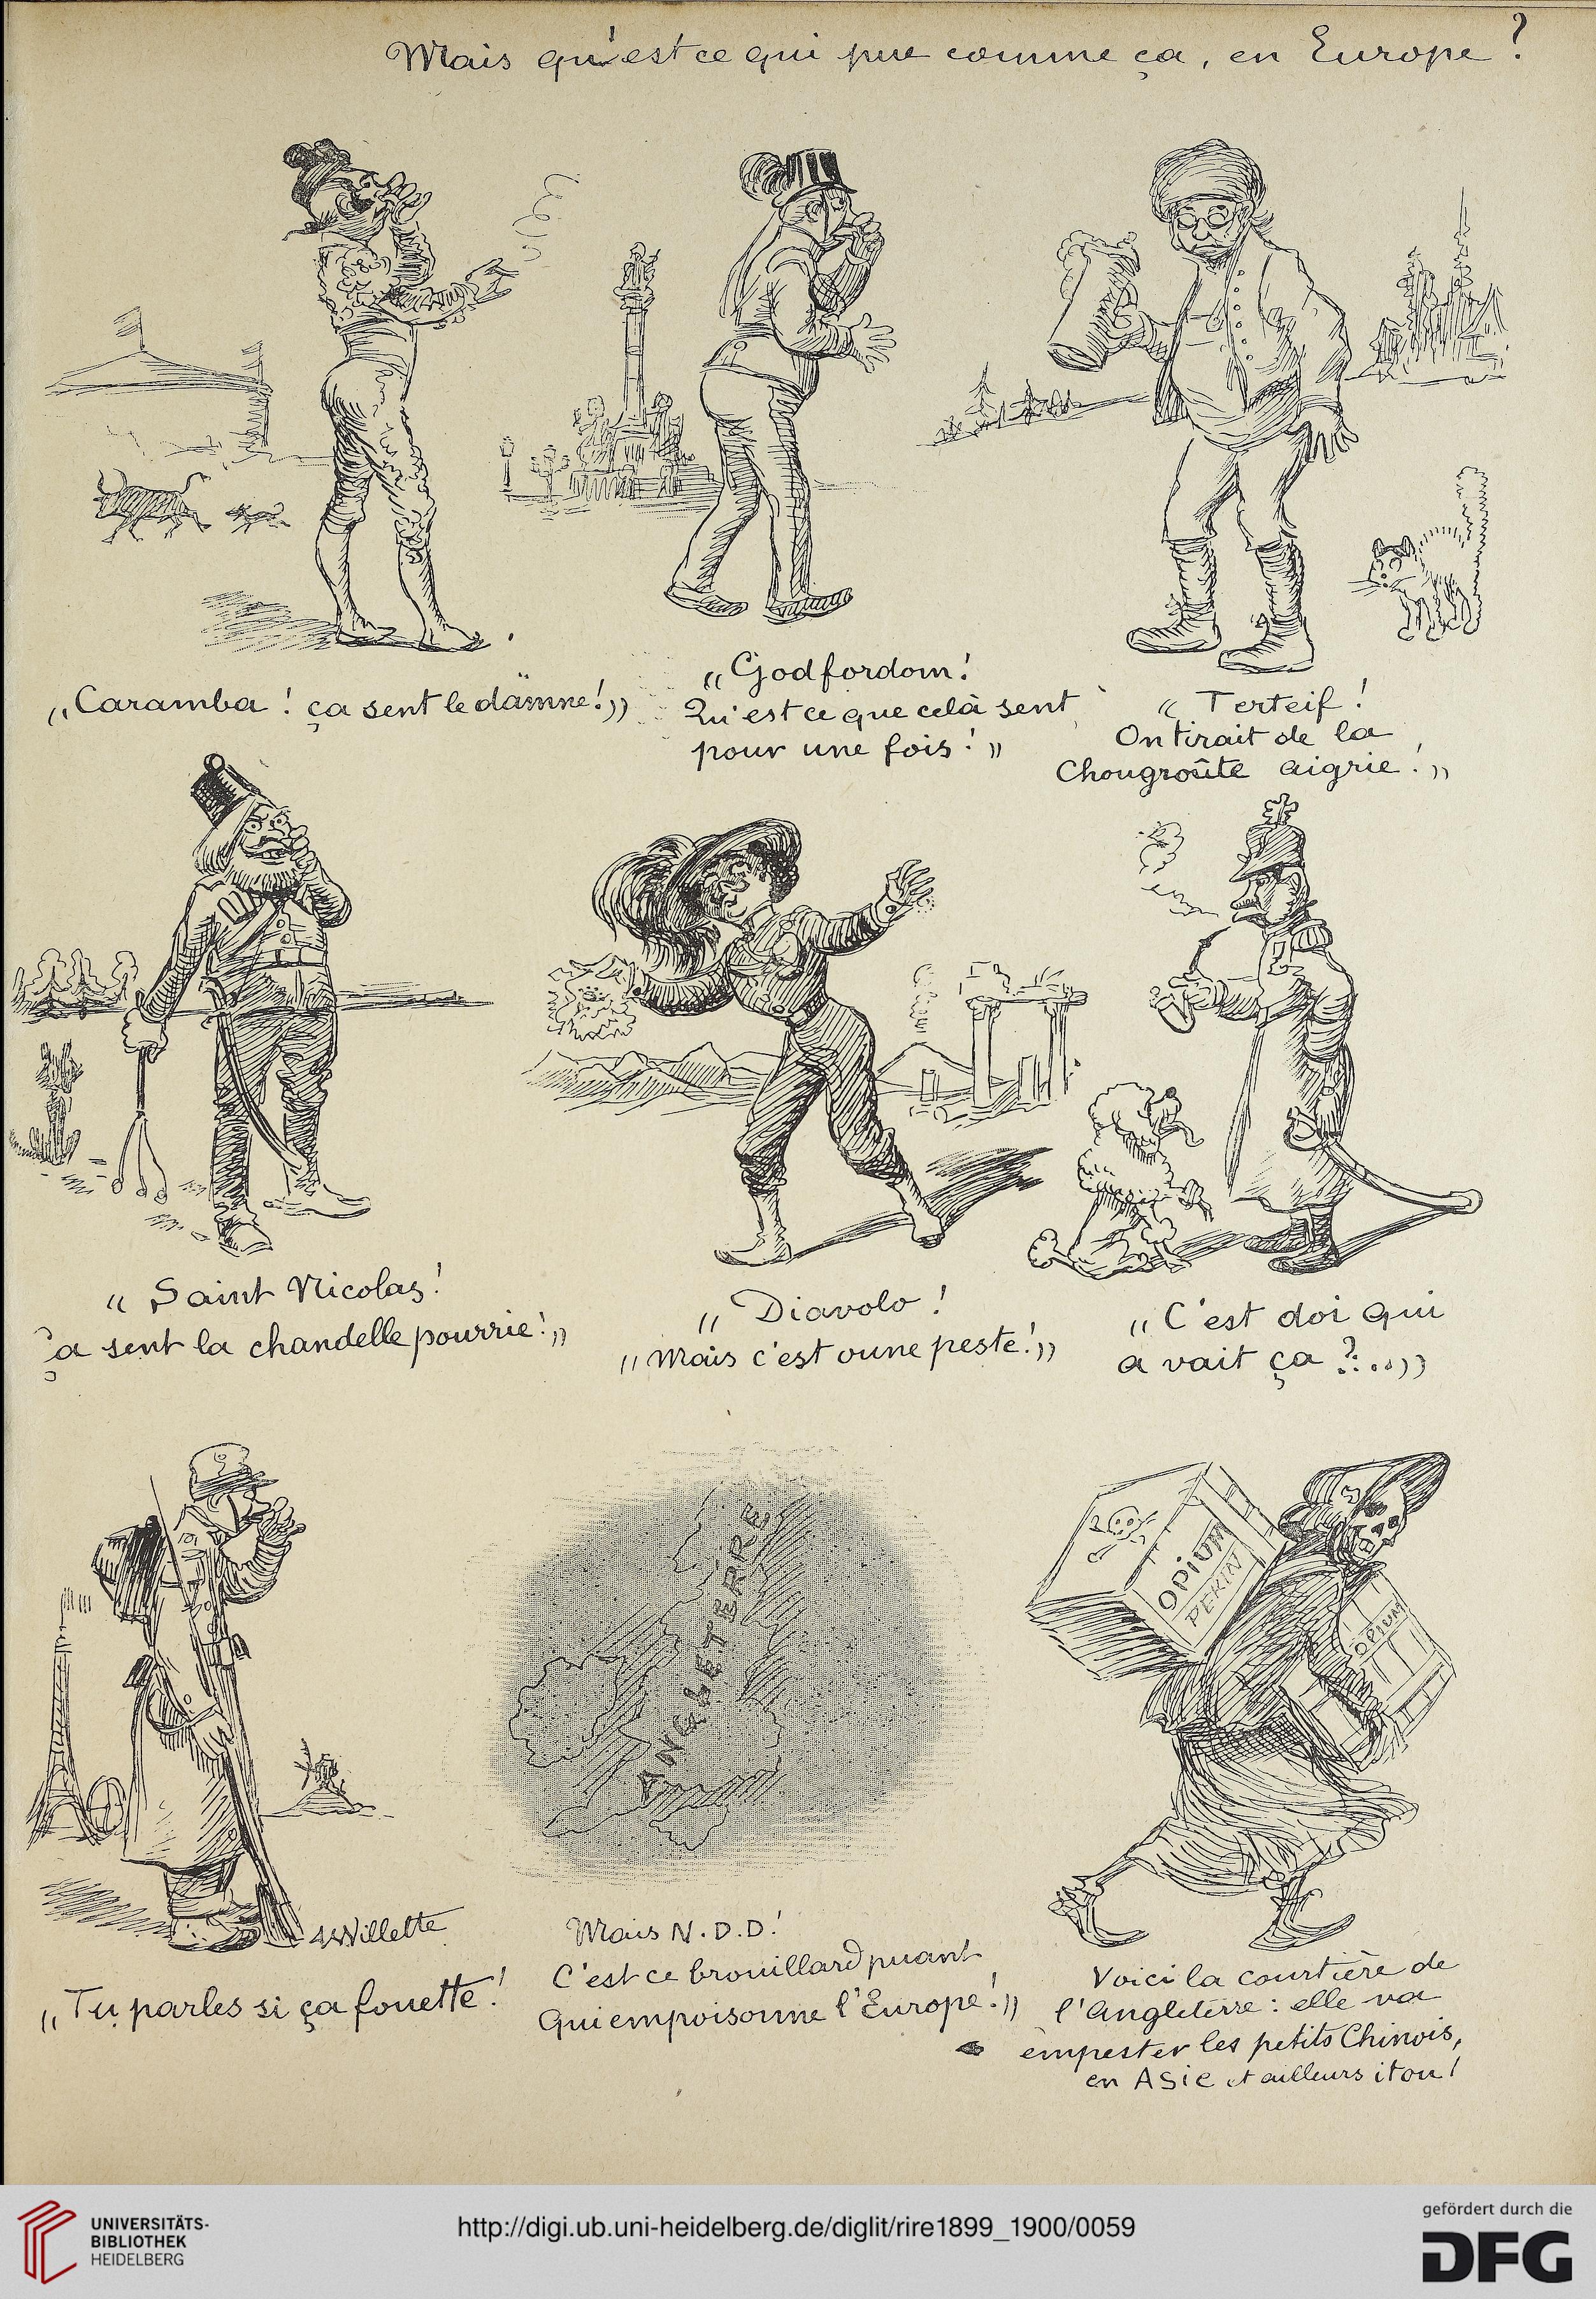 Mais qu'est ce qui pue comme ça, en Europe ?
„Caramba ! ça sent le damne ! »
« Godfordom !
Qu'est ce que celà sent
pour une fois ! »
« Terteif !
On tirait de la
Chougroûte aigrie ! »
« Saint Nicolas !
Ça sent la chandelle pourrie ! »
« Diavolo !
« Mais c'est oune peste ! »
« C'est doi qui
a vait ça ?... »
OPIUM
PEKIN
OPIUM
ANGLETERRE
AWillette
« Tu parles si ça fouette !
Mais N.D.D !
C'est ce brouillard puant
Qui empoisonne l'Europe ! »
Voici la courtière de
l'Angleterre : elle va
empester les petits Chinois,
en ASie et ailleurs itou !
UNIVERSITÄTS-
BIBLIOTHEK
HEIDELBERG
http://digi.ub.uni-heidelberg.de/diglit/rire1899_1900/0059
gefördert durch die
DFG